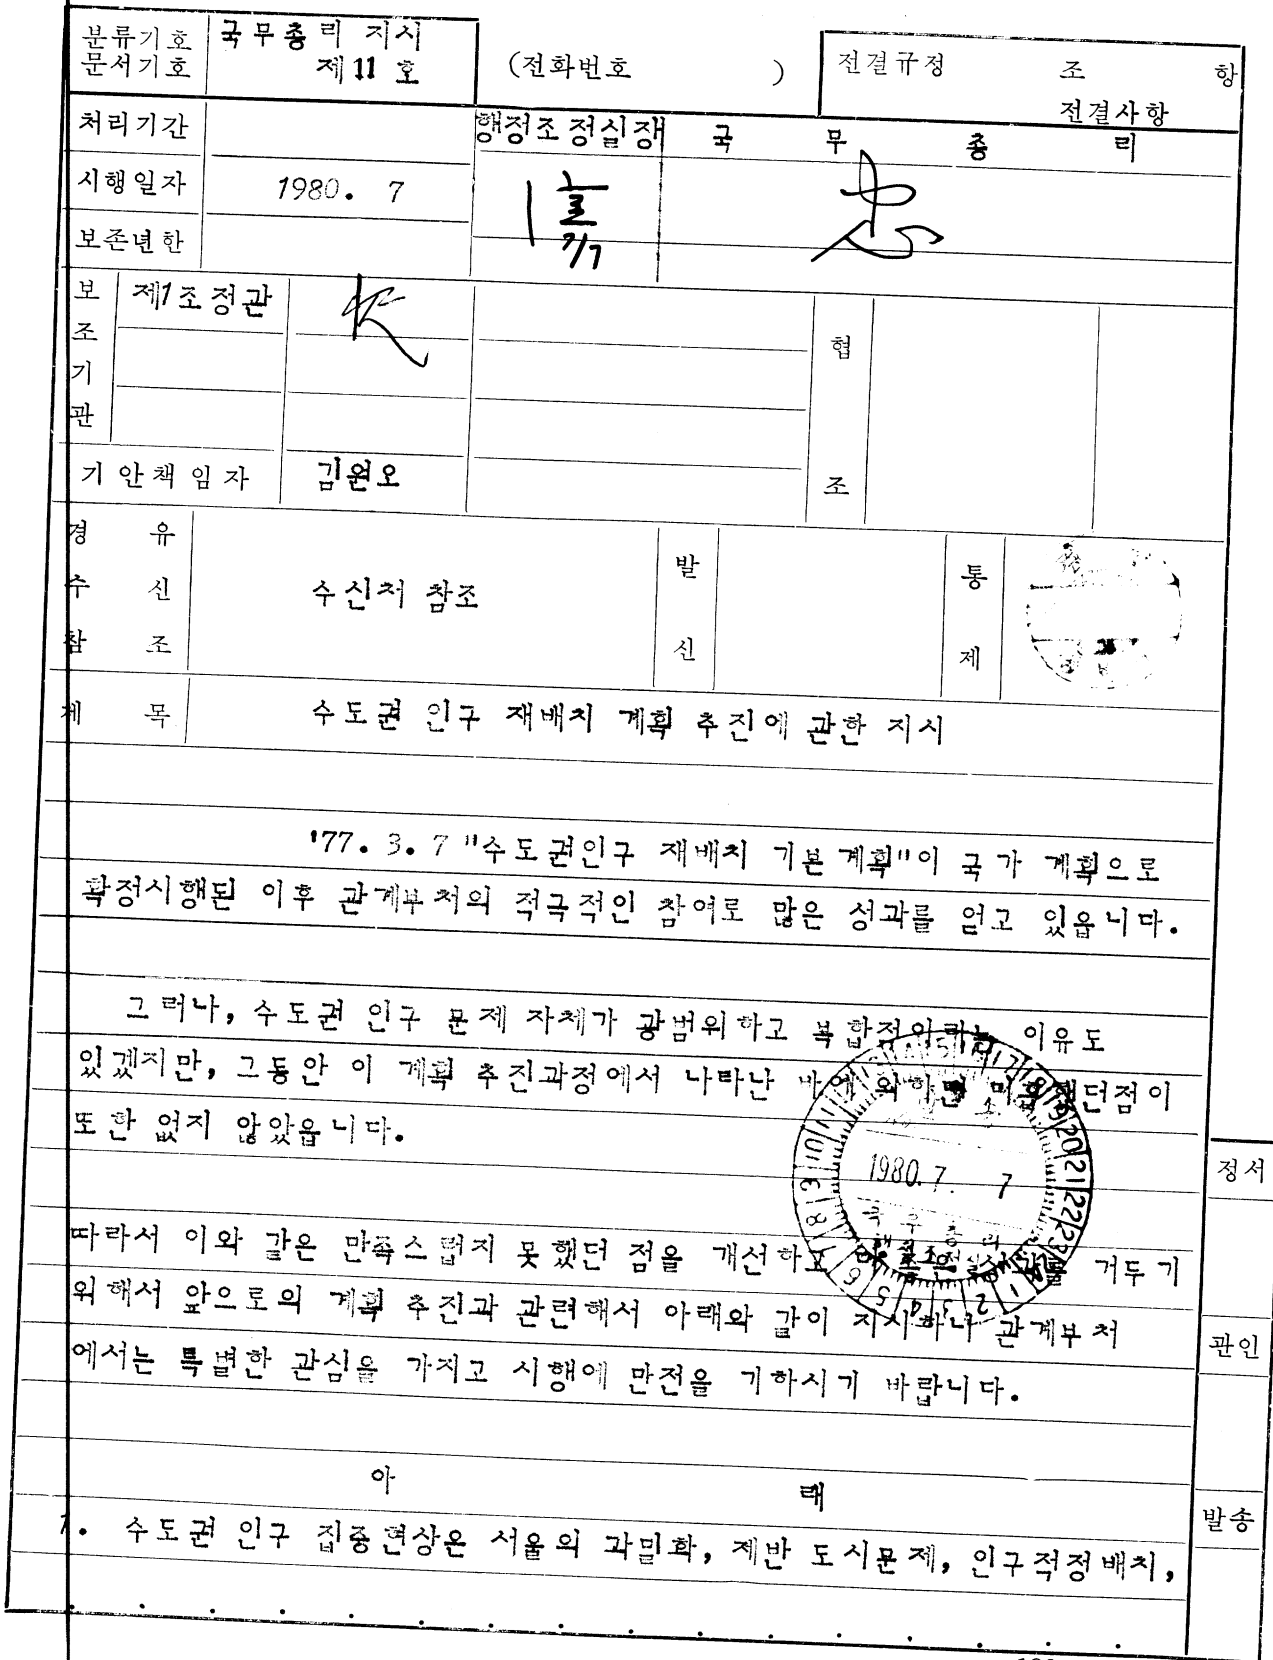 분류기호 국무총리 지시
문서기호 제11호
(전화번호 )
전결규정 조 항
전결사항
처리기간
행정조정실장 국 무 총 리
시행일자 1980. 7
7/7
보존년한
보조기관
제1조정관
협조
기안책임자 김원오
경유
수신 수신처 참조
참조
발신
통제
제 목 수도권 인구 재배치 계획 추진에 관한 지시
'77. 3. 7 "수도권인구 재배치 기본계획"이 국가 계획으로
확정시행된 이후 관계부처의 적극적인 참여로 많은 성과를 얻고 있읍니다.
그러나, 수도권 인구 문제 자체가 광범위하고 복합적이라는 이유도
있겠지만, 그동안 이 계획 추진과정에서 나타난 바에 의하면 미흡했던점이
또한 없지 않았읍니다.
1980. 7. 7
정서
따라서 이와 같은 만족스럽지 못했던 점을 개선하고 거두기
위해서 앞으로의 계획 추진과 관련해서 아래와 같이 지시하니 관계부처
에서는 특별한 관심을 가지고 시행에 만전을 기하시기 바랍니다.
관인
아 래
1. 수도권 인구 집중현상은 서울의 과밀화, 제반 도시문제, 인구적정배치,
발송